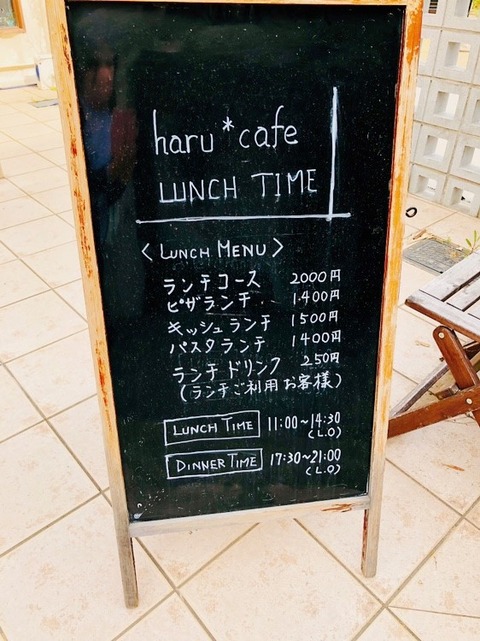 haru*cafe
LUNCH TIME
〈LUNCH MENU〉
ランチコース 2000円
ピザランチ 1400円
キッシュランチ 1500円
パスタランチ 1400円
ランチドリンク 250円
(ランチご利用お客様)
LUNCH TIME 11:00~14:30
(L.O)
DINNER TIME 17:30~21:00
(L.O)